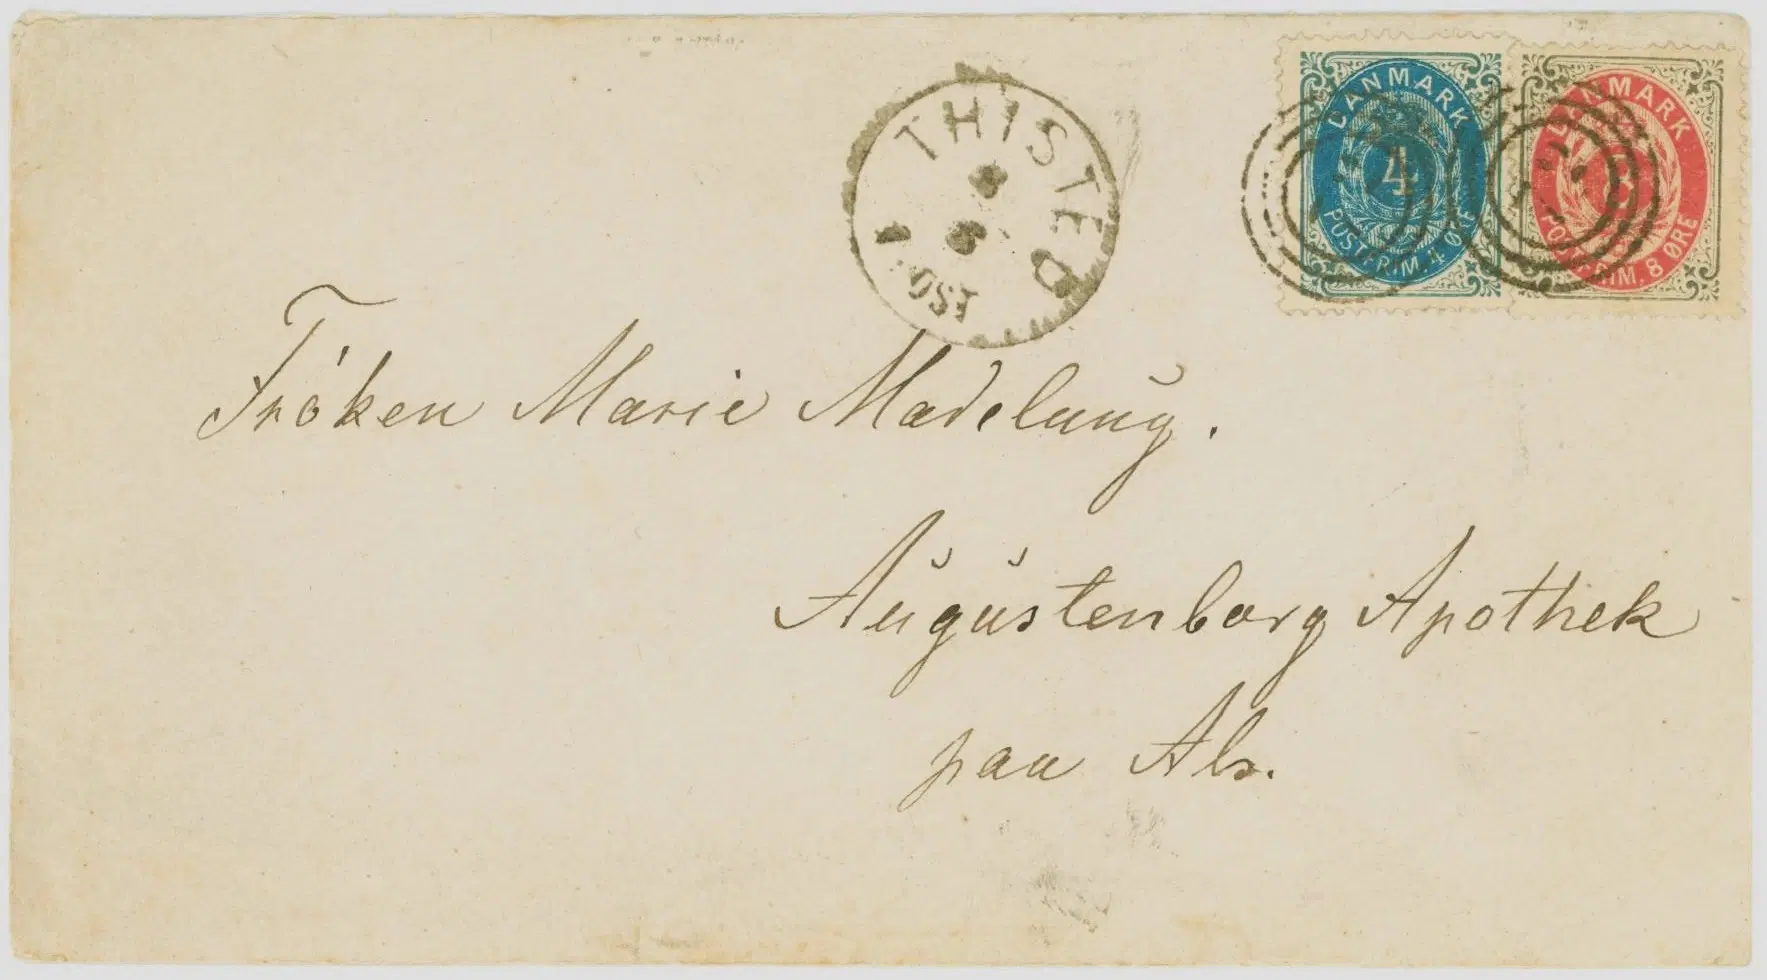 THISTED
DANMARK
4
POSTFRIM. 4 ØRE
DANMARK
8
POSTFRIM. 8 ØRE
Frøken Marie Madelung.
Augustenborg Apothek
paa Als.